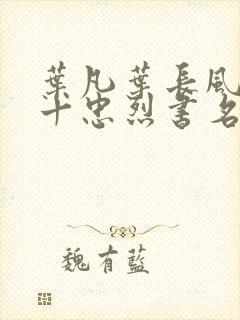 葉凡葉長風
十忠烈書名
魏有藍